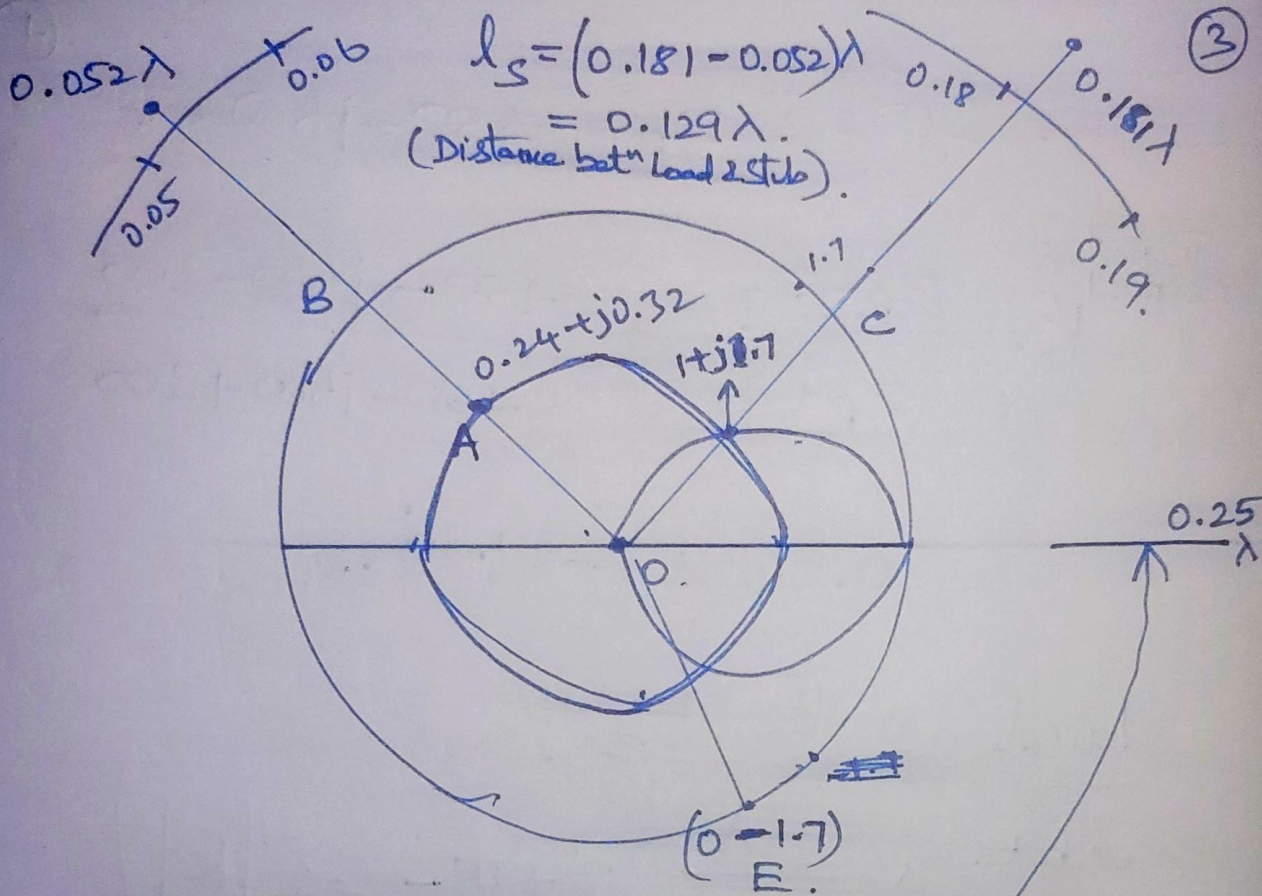 ③
0.052λ
0.06
0.05
ls = (0.181-0.052)λ
= 0.129λ.
(Distance betn Load & Stub).
0.18
0.181λ
0.19.
B
1.7
C
0.24+j0.32
1+j1.7
A
O.
0.25
λ
(0-1.7)
E.